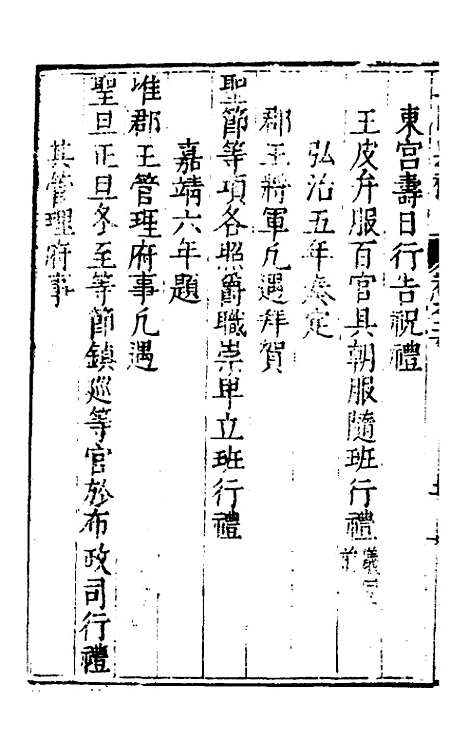 東宮壽日行告祝禮
王皮弁服百官具朝服隨班行禮儀同前
弘治五年奏定
郡王將軍凡遇拜賀
聖節等項各照爵職崇卑立班行禮
嘉靖六年題
准郡王管理府事凡遇
聖旦正旦冬至等節鎮廵等官於布政司行禮
其管理府事